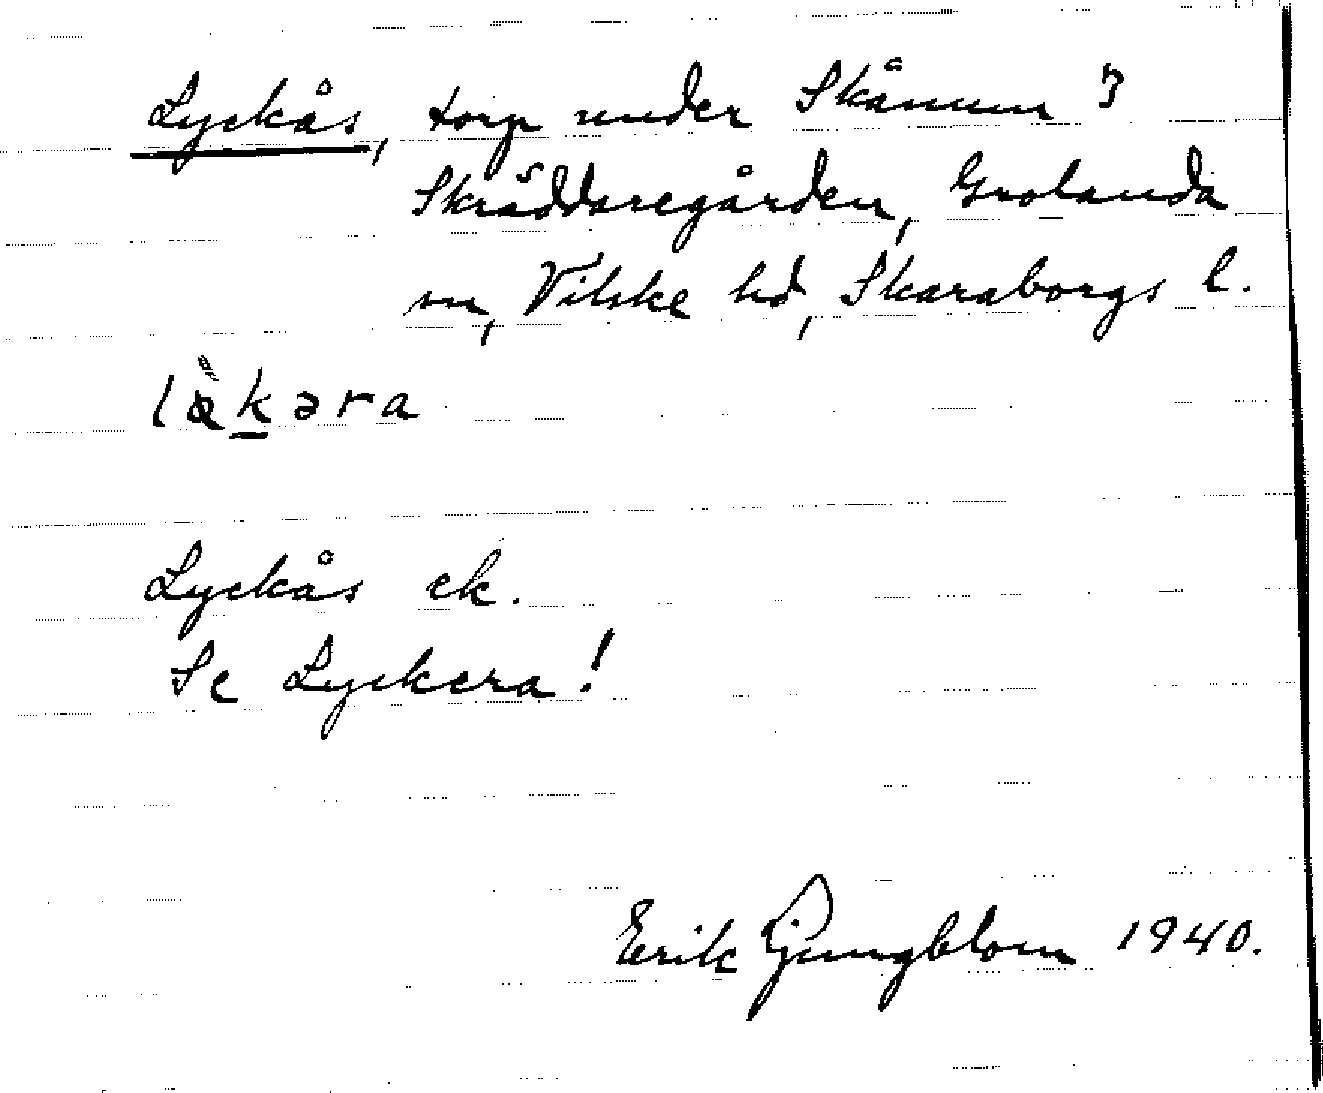 Lyckås, torp under Skånum 3
Skräddaregården, Grolanda
sn, Vilske hd, Skaraborgs l.
kəra
Lyckås ek.
Se Lyckera!
Erik Ljungblom 1940.